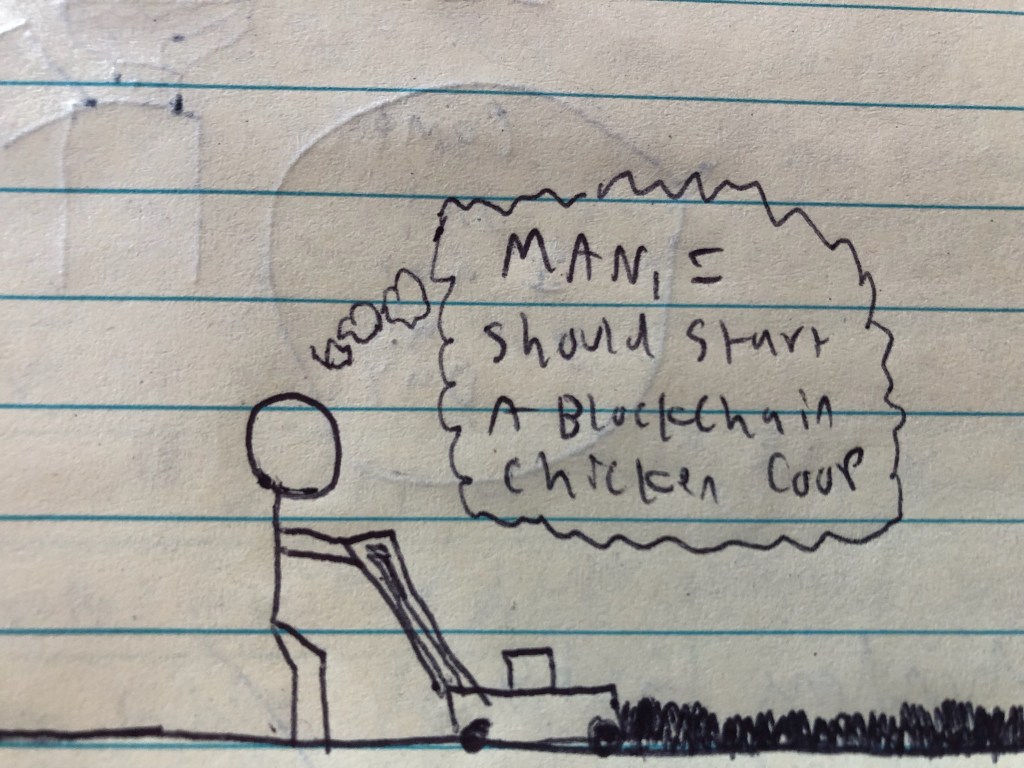 MAN, I
should start
A Blockchain
chicken Coop